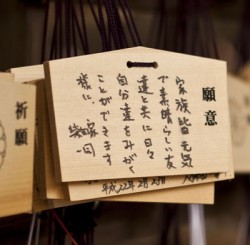 願意
家族皆元気
で素晴らしい友
達と共に日々
自分達をみがく
ことができます
様に。
家一同
平成22年2月23日
祈願